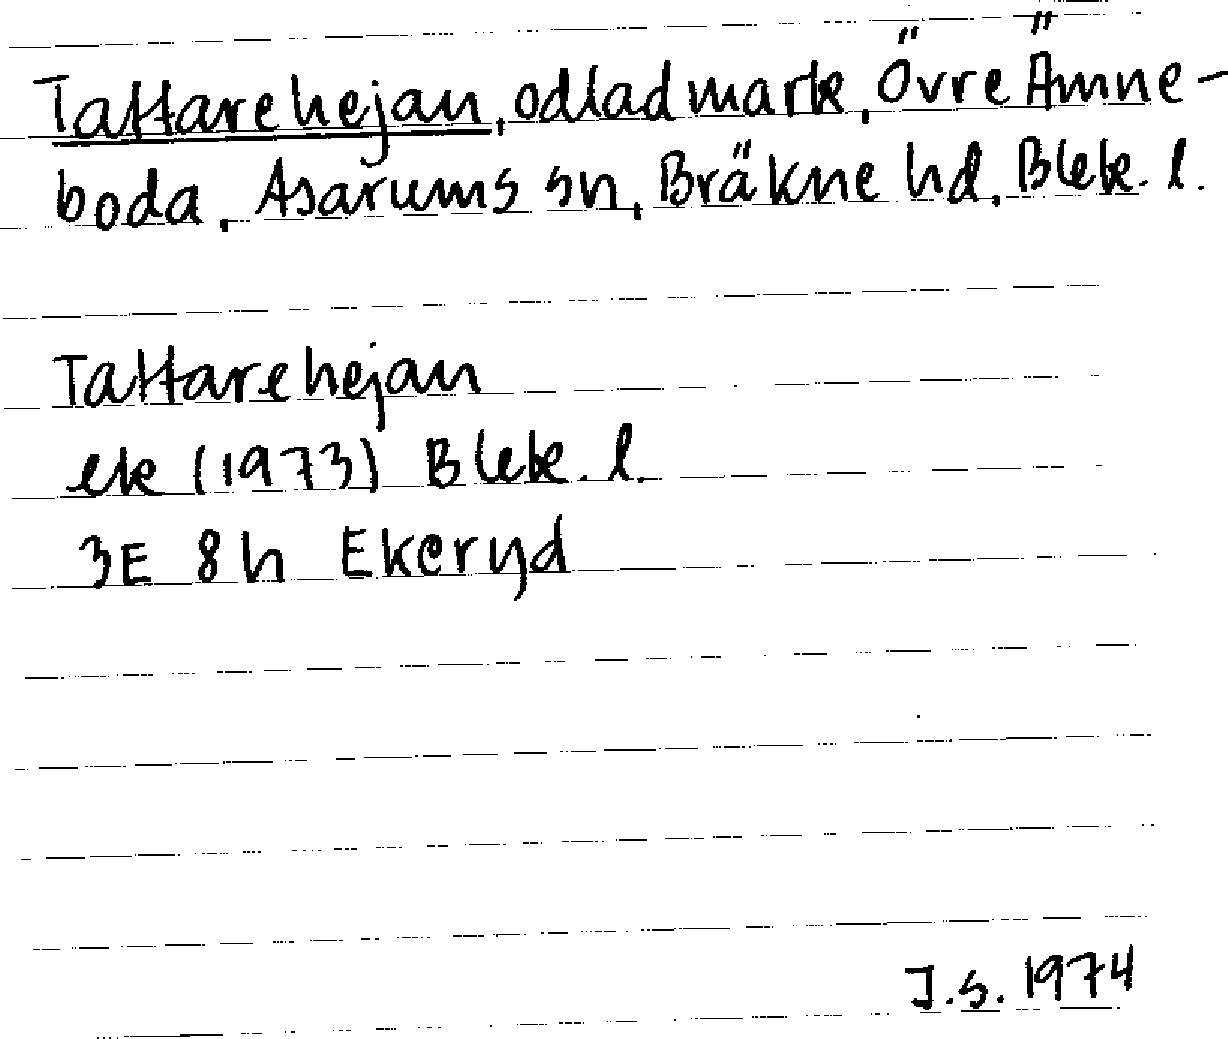 Tattarehejan, odlad mark, Övre Ämne-
boda, Asarums sn, Bräkne hd, Blek. l.
Tattarehejan
ek (1973) Blek. l.
3E 8h Ekeryd
J.S. 1974